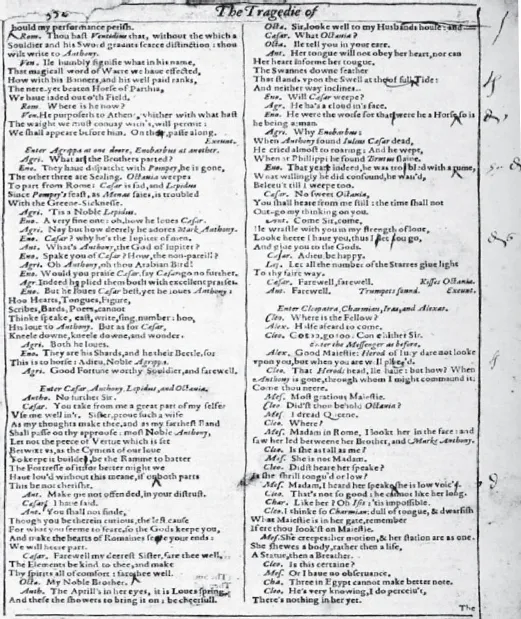 356
The Tragedie of
should my performance perish.
Rom. Thou hast Ventidius that, without the which a
Souldier and his Sword graunts scarce distinction: thou
wilt write to Anthony.
Ven. Ile humbly signifie what in his name,
That magicall word of Warre we haue effected,
How with his Banners, and his well paid ranks,
The nere-yet beaten Horse of Parthia,
We haue iaded out o'th'Field.
Rom. Where is he now?
Ven. He purposeth to Athens, whither with what hast
The waight we must conuay with's, will permit:
We shall appeare before him. On there, passe along.
Exeunt.
Enter Agrippa at one doore, Enobarbus at another.
Agri. What are the Brothers parted?
Eno. They haue dispatcht with Pompey, he is gone,
The other three are Sealing. Octauia weepes
To part from Rome: Cæsar is sad, and Lepidus
Since Pompey's feast, as Menas saies, is troubled
With the Greene-Sicknesse.
Agri. 'Tis a Noble Lepidus.
Eno. A very fine one: oh, how he loues Cæsar.
Agri. Nay but how deerely he adores Mark Anthony.
Eno. Cæsar? why he's the Iupiter of men.
Ant. What's Anthony, the God of Iupiter?
Eno. Spake you of Cæsar? How, the non-pareill?
Agri. Oh Anthony, oh thou Arabian Bird!
Eno. Would you praise Cæsar, say Cæsar go no further.
Agr. Indeed he plied them both with excellent praises.
Eno. But he loues Cæsar best, yet he loues Anthony:
Hoo Hearts, Tongues, Figure,
Scribes, Bards, Poets, cannot
Thinke speake, cast, write, sing, number: hoo,
His loue to Anthony. But as for Cæsar,
Kneele downe, kneele downe, and wonder.
Agri. Both he loues.
Eno. They are his Shards, and he their Beetle, so:
This is to horse: Adieu, Noble Agrippa.
Agri. Good Fortune worthy Souldier, and farewell.
Enter Cæsar, Anthony, Lepidus, and Octauia.
Antho. No further Sir.
Cæsar. You take from me a great part of my selfe:
Vse me well in't. Sister, proue such a wife
As my thoughts make thee, and as my farthest Band
Shall passe on thy approofe: most Noble Anthony,
Let not the peece of Vertue which is set
Betwixt vs, as the Cyment of our loue
To keepe it builded, be the Ramme to batter
The Fortresse of it: for better might we
Haue lou'd without this meane, if on both parts
This be not cherisht.
Ant. Make me not offended, in your distrust.
Cæsar. I haue said.
Ant. You shall not finde,
Though you be therein curious, the lest cause
For what you seeme to feare, so the Gods keepe you,
And make the hearts of Romaines serue your ends:
We will heere part.
Cæsar. Farewell my deerest Sister, fare thee well,
The Elements be kind to thee, and make
Thy spirits all of comfort: fare thee well.
Octa. My Noble Brother.
Anth. The Aprill's in her eyes, it is Loues spring,
And these the showers to bring it on: be cheerfull.
Octa. Sir, looke well to my Husbands house: and
Cæsar. What Octauia?
Octa. Ile tell you in your eare.
Ant. Her tongue will not obey her heart, nor can
Her heart informe her tongue.
The Swannes downe feather
That stands vpon the Swell at the of full Tide:
And neither way inclines.
Eno. Will Cæsar weepe?
Agr. He ha's a cloud in's face.
Eno. He were the worse for that were he a Horse, so is
he being a man.
Agri. Why Enobarbus:
When Anthony found Iulius Cæsar dead,
He cried almost to roaring: And he wept,
When at Phillippi he found Brutus slaine.
Eno. That year indeed, he was troubled with a rume,
What willingly he did confound, he wail'd,
Beleeu't till I weepe too.
Cæsar. No sweet Octauia,
You shall heare from me still: the time shall not
Out-go my thinking on you.
Ant. Come Sir, come,
Ile wrastle with you in my strength of loue,
Looke heere I haue you, thus I let you go,
And giue you to the Gods.
Cæsar. Adieu, be happy.
Lep. Let all the number of the Starres giue light
To thy faire way.
Cæsar. Farewell, farewell. Kisses Octauia.
Ant. Farewell. Trumpets sound. Exeunt.
Enter Cleopatra, Charmian, Iras, and Alexas.
Cleo. Where is the Fellow?
Alex. Halfe afeard to come.
Cleo. Go too, go too: Come hither Sir.
Enter the Messenger as before.
Alex. Good Maiestie: Herod of Iury dare not looke
vpon you, but when you are well pleas'd.
Cleo. That Herods head, Ile haue: but how? When
Anthony is gone, through whom I might commaund it:
Come thou neere.
Mes. Most gratious Maiestie.
Cleo. Did'st thou behold Octauia?
Mes. I dread Queene.
Cleo. Where?
Mes. Madam in Rome, I lookt her in the face: and
saw her led betweene her Brother, and Marke Anthony.
Cleo. Is she as tall as me?
Mes. She is not Madam.
Cleo. Didst heare her speake?
Is she shrill tongu'd or low?
Mes. Madam, I heard her speake, she is low voic'd.
Cleo. That's not so good: he cannot like her long.
Char. Like her? Oh Isis: 'tis impossible.
Cleo. I thinke so Charmian: dull of tongue, & dwarfish
What Maiestie is in her gate, remember
If ere thou look'st on Maiestie.
Mes. She creepes: her motion, & her station are as one.
She shewes a body, rather then a life,
A Statue, then a Breather.
Cleo. Is this certaine?
Mes. Or I haue no obseruance.
Cha. Three in Egypt cannot make better note.
Cleo. He's very knowing, I do perceiu't,
There's nothing in her yet.
The